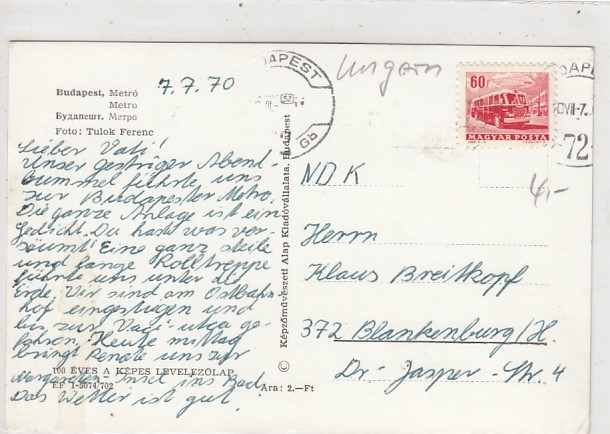 Budapest, Metró
Metro
Будапешт. Метро
Foto: Tulok Ferenc
7.7.70
Lieber Vati!
Unser gestriger Abend-
bummel führte uns
zur Budapester Metro.
Die ganze Anlage ist ein
Gedicht. Du hast was ver-
säumt! Eine ganz steile
und lange Rolltreppe
führte uns unter die
Erde. Wir sind am Ostbahn-
hof eingestiegen und
bis zur Vaci-utca ge-
fahren. Heute mittag
bringt Renate uns zur
Margareten-Insel ins Bad.
Das Wetter ist gut.
100 ÉVES A KÉPES LEVELEZŐLAP
EF 1-5074/702
Ára: 2,—Ft
© Képzőművészeti Alap Kiadóvállalata, Budapest
Ungarn
BUDAPEST
60f
MAGYAR POSTA
BUDAP
72
4,-
NDK
Herrn
Klaus Breitkopf
372 Blankenburg/H.
Dr.-Jasper-Str. 4